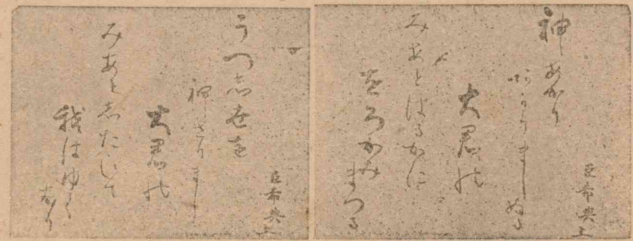 臣希典上
神あかり
あかりましぬる
大君の
みあとはるかに
をろかみ
まつる
臣希典上
うつ志世を
神さりましゝ
大君の
みあと志たひて
我はゆく
なり